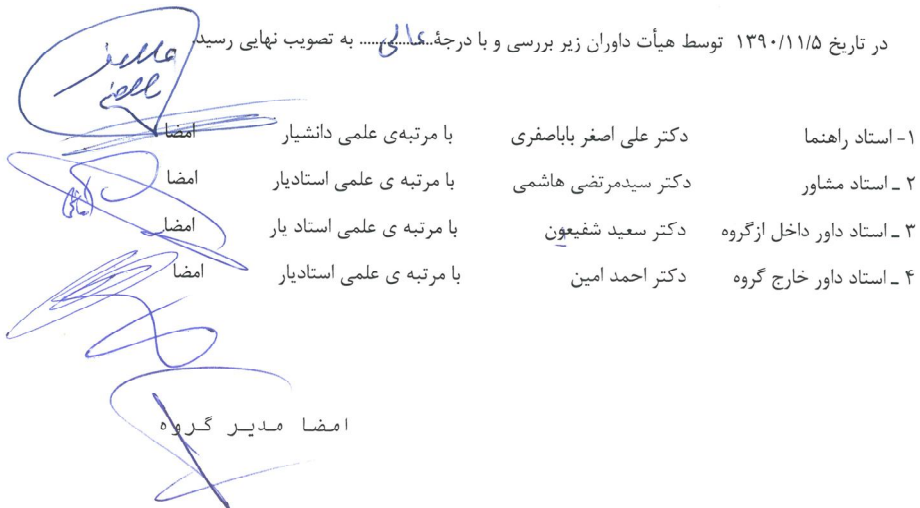 در تاریخ ۱۳۹۰/۱۱/۵ توسط هیأت داوران زیر بررسی و با درجهٔ...عالی...... به تصویب نهایی رسید.
۱- استاد راهنما دکتر علی اصغر باباصفری با مرتبه‌ی علمی دانشیار امضا
۲ ـ استاد مشاور دکتر سیدمرتضی هاشمی با مرتبه ی علمی استادیار امضا
۳ ـ استاد داور داخل ازگروه دکتر سعید شفیعون با مرتبه ی علمی استاد یار امضا
۴ ـ استاد داور خارج گروه دکتر احمد امین با مرتبه ی علمی استادیار امضا
امضا مدیر گروه